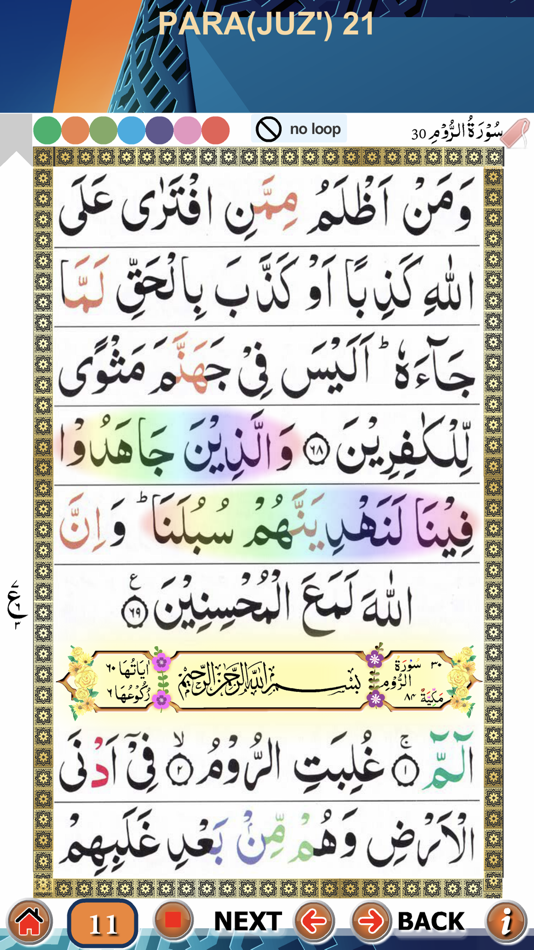 PARA(JUZ') 21
no loop
30 سُوْرَةُ الرُّوْمِ
وَمَنْ اَظْلَمُ مِمَّنِ افْتَرٰى عَلَى
اللّٰهِ كَذِبًا اَوْ كَذَّبَ بِالْحَقِّ لَمَّا
جَآءَهٗ ؕ اَلَيْسَ فِىْ جَهَنَّمَ مَثْوًى
لِّلْكٰفِرِيْنَ ﴿۶۸﴾ وَالَّذِيْنَ جَاهَدُوْا
فِيْنَا لَنَهْدِيَنَّهُمْ سُبُلَنَا ؕ وَاِنَّ
اللّٰهَ لَمَعَ الْمُحْسِنِيْنَ ﴿۶۹﴾ ع
۷ ع ۶ ۳
۳۰ سُوْرَةُ الرُّوْمِ مَكِّيَّةٌ ۸۴
بِسْمِ اللّٰهِ الرَّحْمٰنِ الرَّحِيْمِ
اٰيَاتُهَا ۶۰ رُكُوْعُهَا ۶
الٓمّٓ ﴿۱﴾ ۚ غُلِبَتِ الرُّوْمُ ﴿۲﴾ ۙ فِىْۤ اَدْنَى
الْاَرْضِ وَهُمْ مِّنْۢ بَعْدِ غَلَبِهِمْ
11
NEXT
BACK
i